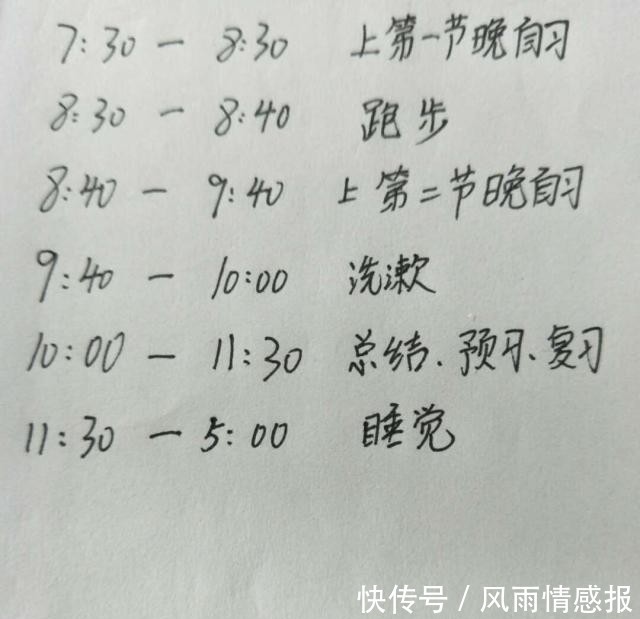 7:30 — 8:30 上第一节晚自习
8:30 — 8:40 跑步
8:40 — 9:40 上第二节晚自习
9:40 — 10:00 洗漱
10:00 — 11:30 总结、预习、复习
11:30 — 5:00 睡觉
快传号 / 风雨情感报